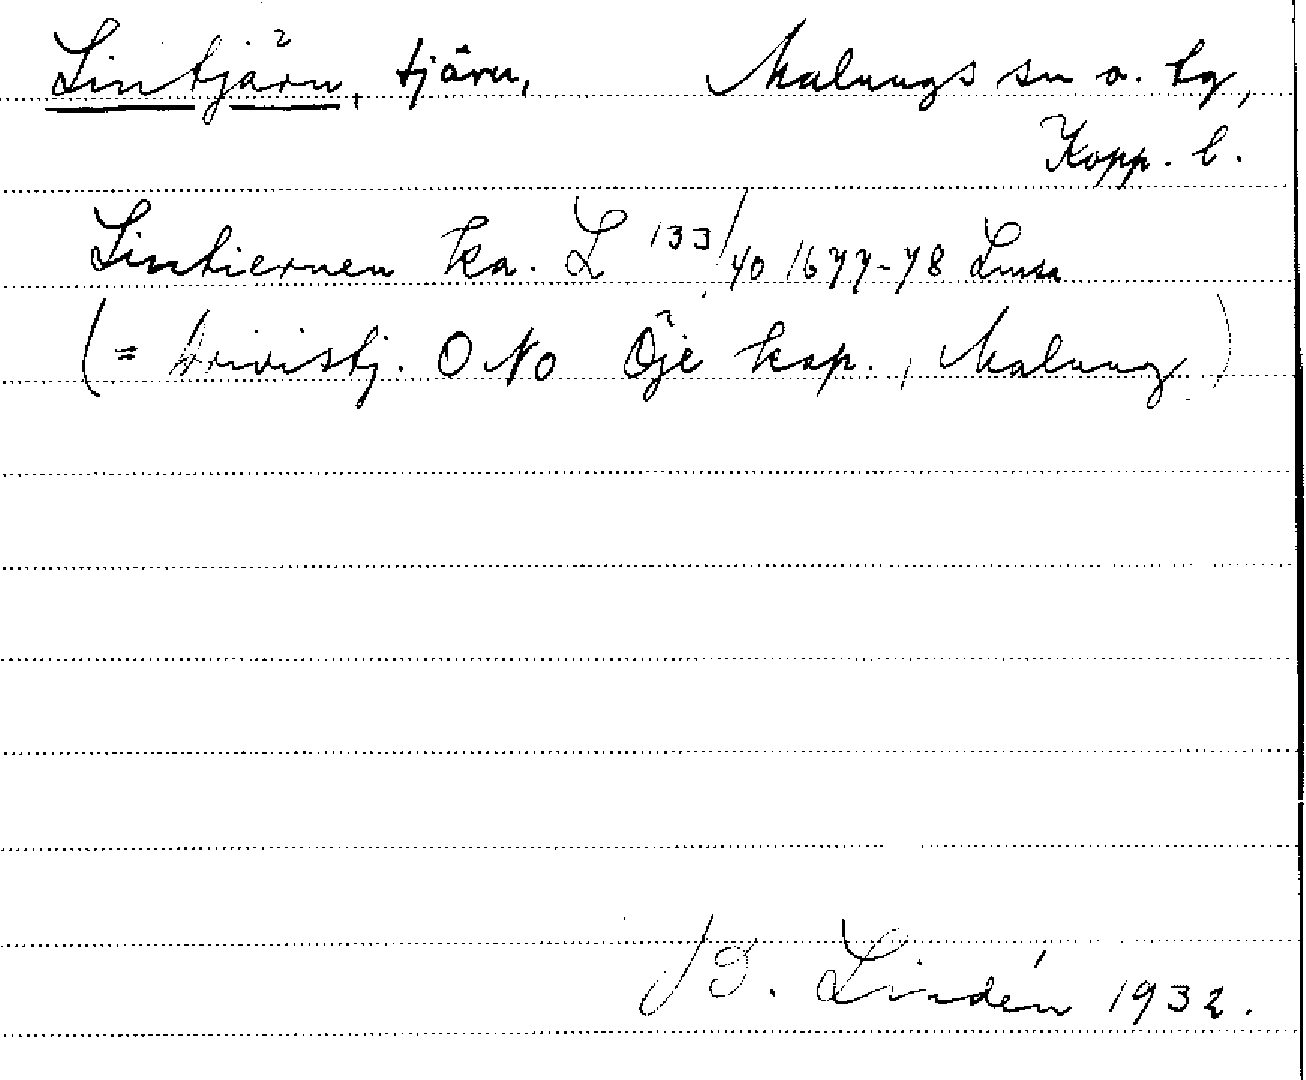 Lintjärn, tjärn, Malungs sn o. tg,
Kopp. l.
Lintiernen ka. L 133/40 1677-78 Lmsa
(= Arvistj. O No Öje kap., Malung)
B. Lindén 1932.